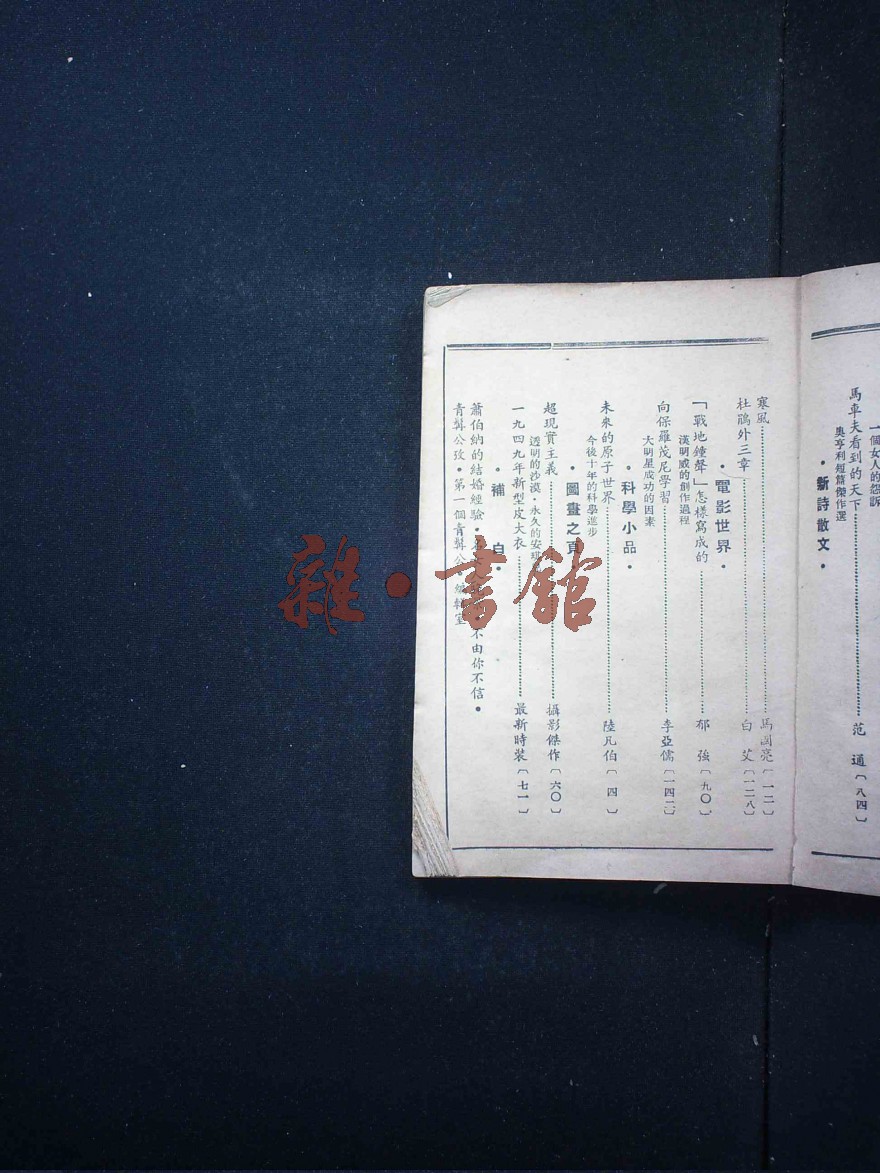 一個女人的怨訴
馬車夫看到的天下……范通〔八四〕
奧亨利短篇傑作選
•新詩散文•
寒風……馬國亮〔一二〕
杜鵑外三章……白艾〔一二八〕
•電影世界•
「戰地鐘聲」怎樣寫成的……郁強〔九〇〕
漢明威的創作過程
向保羅茂尼學習……李亞儒〔一四二〕
大明星成功的因素
•科學小品•
未來的原子世界……陸凡伯〔四〕
今後十年的科學進步
•圖畫之頁•
超現實主義……攝影傑作〔六〇〕
透明的沙漠•永久的安
一九四九年新型皮大衣……最新時裝〔七一〕
•補白•
蕭伯納的結婚經驗•不由你不信•
青斝公攷•第一個青斝公•編輯室
雜•書館